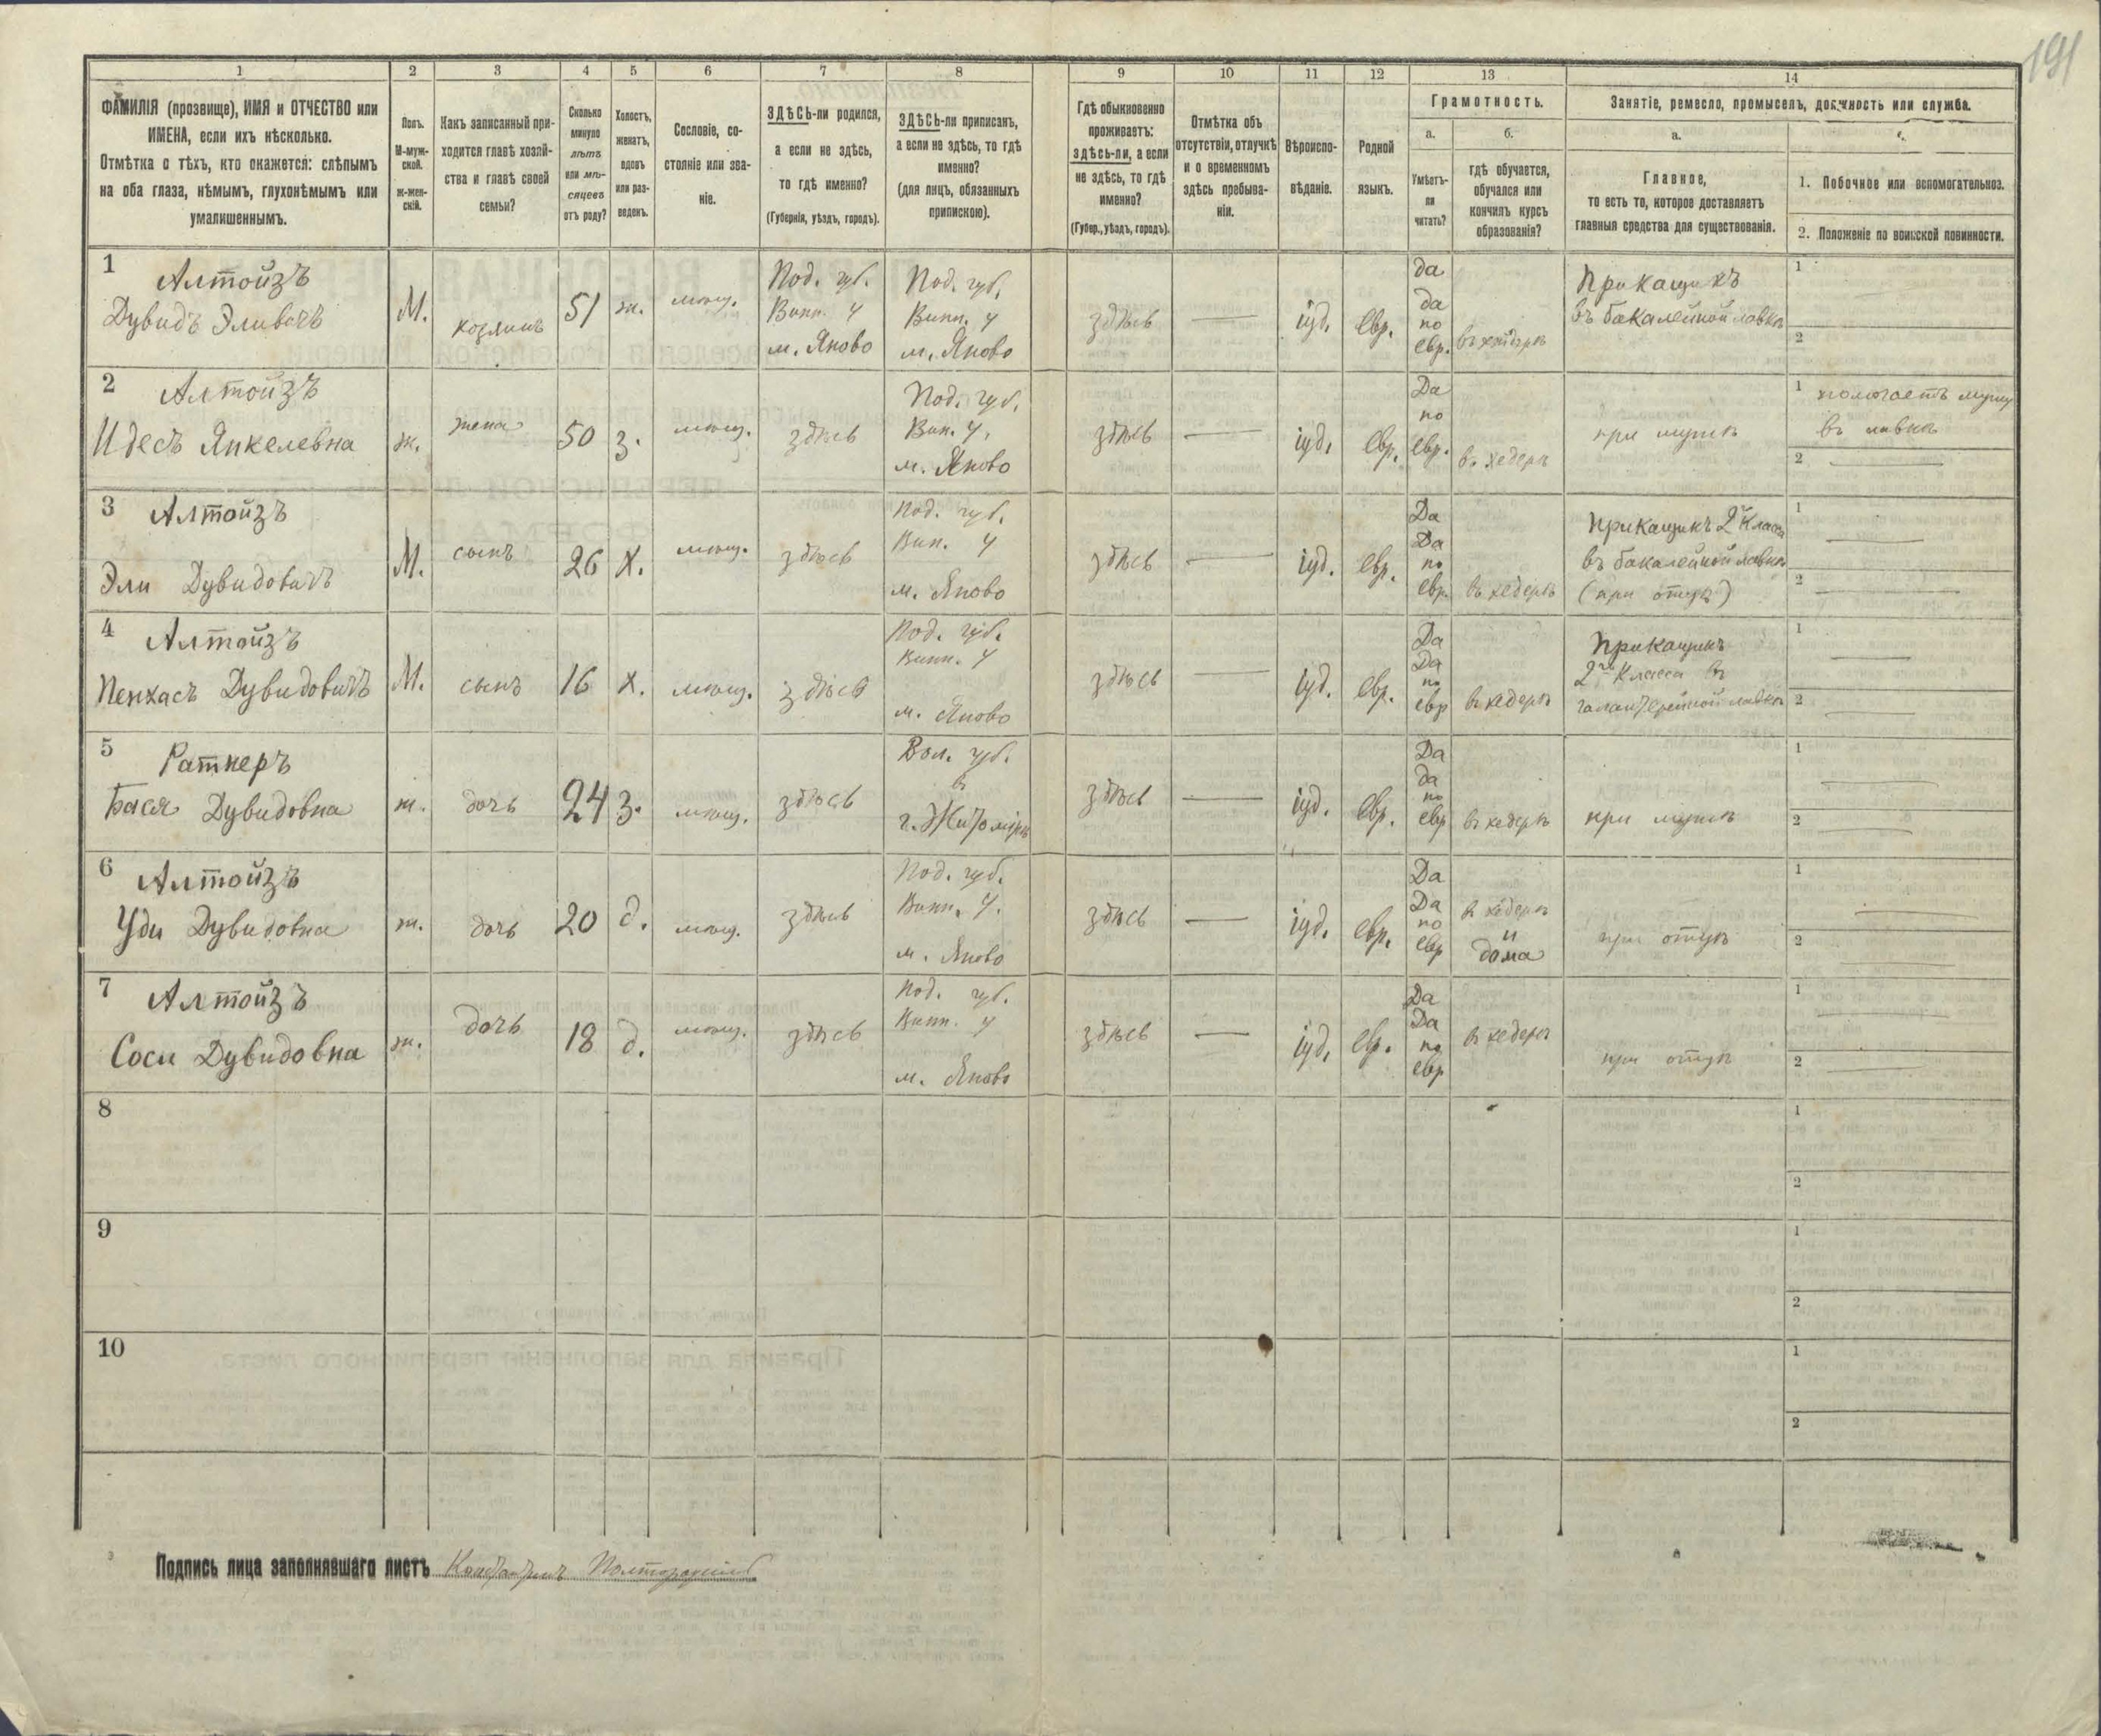 191
1 2 3 4 5 6 7 8 9 10 11 12 13 14
ФАМИЛІЯ (прозвище), ИМЯ и ОТЧЕСТВО или
ИМЕНА, если ихъ нѣсколько.
Отмѣтка о тѣхъ, кто окажется: слѣпымъ
на оба глаза, нѣмымъ, глухонѣмымъ или
умалишеннымъ.
Полъ.
М-муж-
ской.
ж-жен-
скій.
Какъ записанный при-
ходится главѣ хозяй-
ства и главѣ своей
семьи?
Сколько
минуло
лѣтъ
или мѣ-
сяцевъ
отъ роду?
Холостъ,
женатъ,
вдовъ
или раз-
веденъ.
Сословіе, со-
стояніе или зва-
ніе.
ЗДѢСЬ-ли родился,
а если не здѣсь,
то гдѣ именно?
(Губернія, уѣздъ, городъ).
ЗДѢСЬ-ли приписанъ,
а если не здѣсь, то гдѣ
именно?
(для лицъ, обязанныхъ
припискою).
Гдѣ обыкновенно
проживаетъ:
здѣсь-ли, а если
не здѣсь, то гдѣ
именно?
(Губер., уѣздъ, городъ).
Отмѣтка объ
отсутствіи, отлучкѣ
и о временномъ
здѣсь пребыва-
ніи.
Вѣроиспо-
вѣданіе.
Родной
языкъ.
Грамотность.
а.
Умѣетъ-
ли
читать?
б.
гдѣ обучается,
обучался или
кончилъ курсъ
образованія?
Занятіе, ремесло, промыселъ, должность или служба.
а.
Главное,
то есть то, которое доставляетъ
главныя средства для существованія.
1. Побочное или вспомогательное.
2. Положеніе по воинской повинности.
1
Алтойзъ
Дувидъ Эливичъ
М.
хозяинъ
51
ж.
мѣщ.
Под. губ.
Винн. у
м. Яново
Под. губ.
Винн. у
м. Яново
здѣсь
іуд.
евр.
да
да
по
евр.
въ хедерѣ
Прикащикъ
въ бакалейной лавкѣ
1
2
2
Алтойзъ
Идесъ Янкелевна
ж.
жена
50
з.
мѣщ.
здѣсь
Под. губ.
Вин. у.
м. Яново
здѣсь
іуд.
евр.
Да
по
евр.
въ хедерѣ
при мужѣ
1 помогаетъ мужу
въ лавкѣ
2
3
Алтойзъ
Эли Дувидовичъ
М.
сынъ
26
х.
мѣщ.
здѣсь
Под. губ.
Вин. у
м. Яново
здѣсь
іуд.
евр.
Да
Да
по
евр.
въ хедерѣ
Прикащикъ 2го класса
въ бакалейной лавкѣ
(при отцѣ)
1
2
4
Алтойзъ
Пенхасъ Дувидовичъ
М.
сынъ
16
х.
мѣщ.
здѣсь
Под. губ.
Винн. у
м. Яново
здѣсь
іуд.
евр.
Да
Да
по
евр
въ хедерѣ
Прикащикъ
2го класса въ
галантерейной лавкѣ
1
2
5
Ратнеръ
Бася Дувидовна
ж.
дочь
24
з.
мѣщ.
здѣсь
Вол. губ.
въ
г. Житомірѣ
здѣсь
іуд.
евр.
Да
да
по
евр
въ хедерѣ
при мужѣ
1
2
6
Алтойзъ
Уди Дувидовна
ж.
дочь
20
д.
мѣщ.
здѣсь
Под. губ.
Винн. у.
м. Яново
здѣсь
іуд.
евр.
Да
Да
по
евр
въ хедерѣ
и
дома
при отцѣ
1
2
7
Алтойзъ
Соси Дувидовна
ж.
дочь
18
д.
мѣщ.
здѣсь
Под. губ.
Винн. у
м. Яново
здѣсь
іуд.
евр.
Да
Да
по
евр
въ хедерѣ
при отцѣ
1
2
8
1
2
9
1
2
10
1
2
Подпись лица заполнявшаго листъ